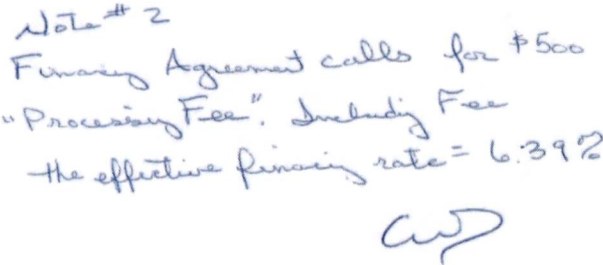 Note # 2
Financing Agreement calls for $500
"Processing Fee". Including Fee
the effective financing rate = 6.39%